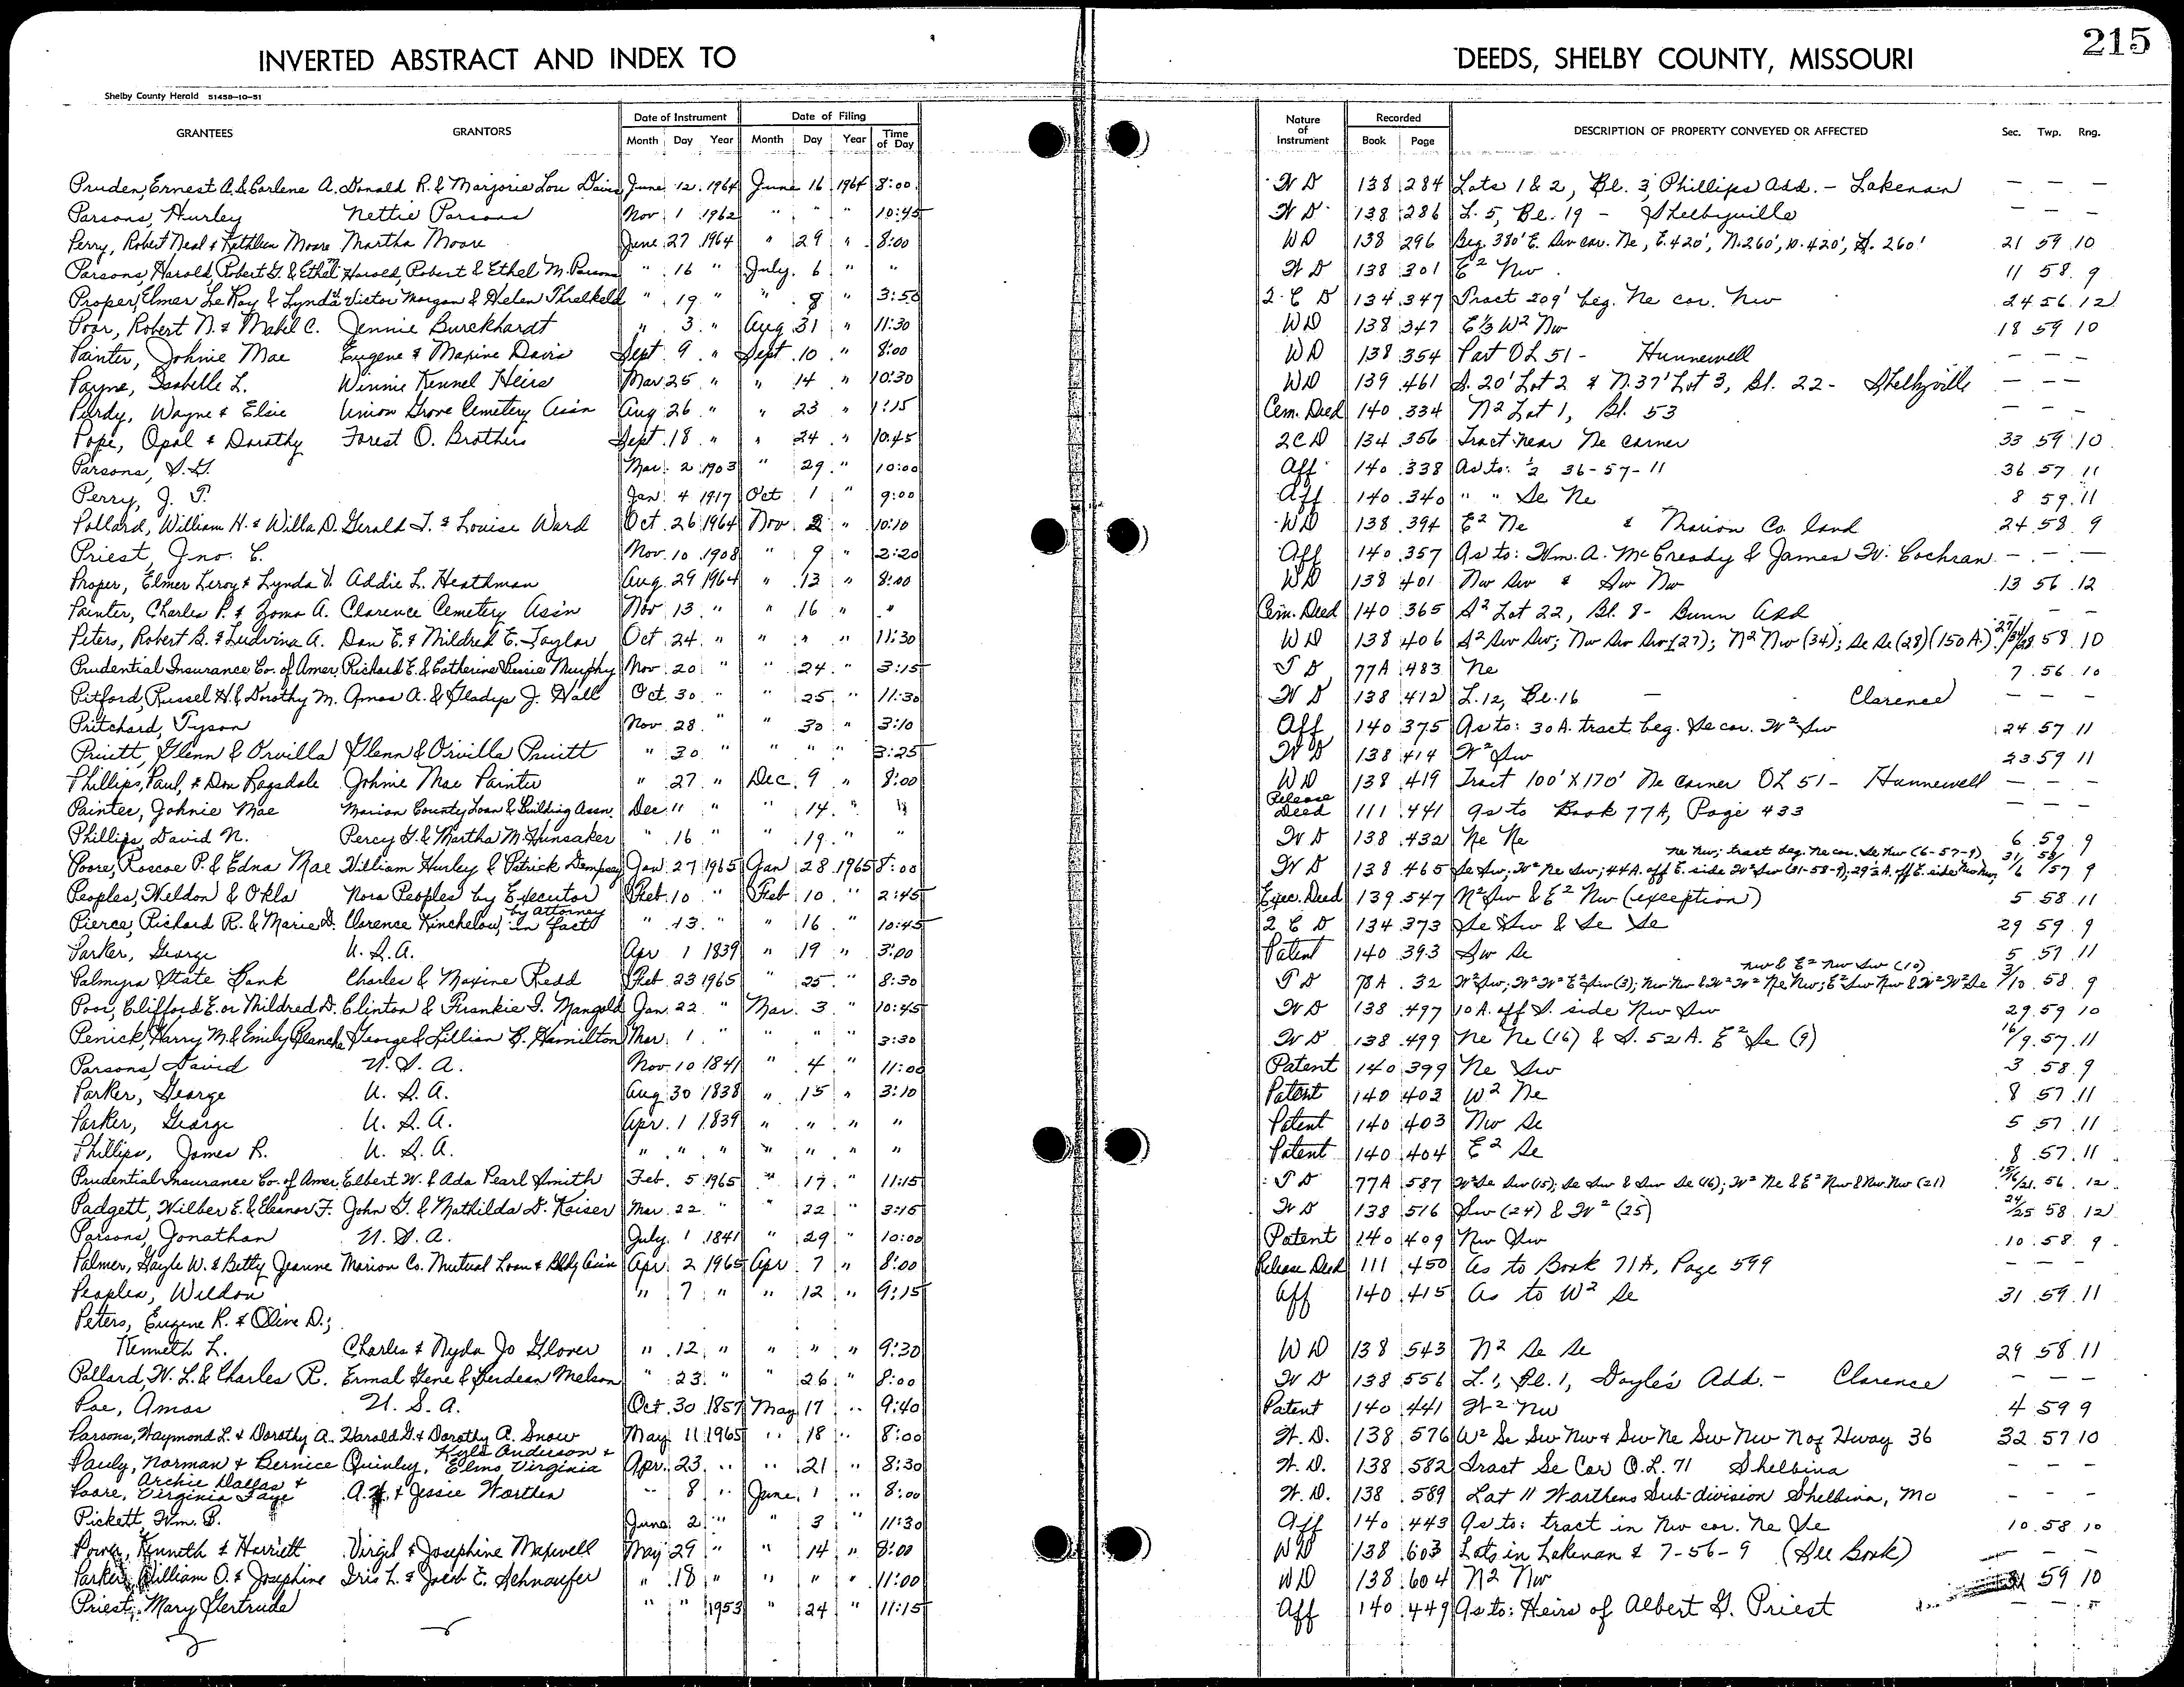 INVERTED ABSTRACT AND INDEX TO DEEDS, SHELBY COUNTY, MISSOURI 215
Shelby County Herald 51458-10-51
GRANTEES GRANTORS Date of Instrument Month Day Year Date of Filing Month Day Year Time of Day Nature of Instrument Recorded Book Page DESCRIPTION OF PROPERTY CONVEYED OR AFFECTED Sec. Twp. Rng.
Pruden, Ernest A. & Earlene A. Donald R. & Marjorie Lou Davis June 12 1964 June 16 1964 8:00 W D 138 284 Lots 1 & 2, Bl. 3, Phillips Add. - Lakenan - - -
Parsons, Hurley Nettie Parsons Nov 1 1962 " " " 10:45 W D 138 286 L. 5, Bl. 19 - Shelbyville - - -
Perry, Robert Neal & Kathleen Moore Martha Moore June 27 1964 " 29 " 8:00 WD 138 296 Beg. 380' E. Sw cor. Ne, E. 420', N. 260', W. 420', S. 260' 21 59 10
Parsons, Harold, Robert G. & Ethel M. Harold, Robert & Ethel M. Parsons " 16 " July 6 " " W D 138 301 E² Nw 11 58 9
Proper, Elmer LeRoy & Lynda V. Victor Morgan & Helen Threlkeld " 19 " " 8 " 3:50 2 C D 134 347 Tract 209' beg. Ne cor. Nw 24 56 12
Poor, Robert N. & Mabel C. Jennie Burckhardt " 3 " Aug 31 " 11:30 WD 138 347 E⅓ W² Nw 18 59 10
Painter, Johnie Mae Eugene & Maxine Davis Sept. 9 " Sept. 10 " 8:00 WD 138 354 Part OL 51 - Hunnewell - - -
Payne, Isabelle L. Winnie Kennel Heirs Mar 25 " " 14 " 10:30 WD 139 461 S. 20' Lot 2 & N. 37' Lot 3, Bl. 22 - Shelbyville - - -
Purdy, Wayne & Elsie Union Grove Cemetery Ass'n Aug 26 " " 23 " 1:15 Cem. Deed 140 334 N² Lot 1, Bl. 53 - - -
Pope, Opal & Dorothy Forest O. Brothers Sept. 18 " " 24 " 10:45 2CD 134 356 Tract near Ne corner 33 59 10
Parsons, S.G. Mar. 2 1903 " 29 " 10:00 Aff 140 338 As to: ½ 36-57-11 36 57 11
Perry, J. T. Jan 4 1917 Oct 1 " 9:00 Aff 140 340 " " Se Ne 8 59 11
Pollard, William H. & Willa D. Gerald T. & Louise Ward Oct. 26 1964 Nov 2 " 10:10 WD 138 394 E² Ne & Marion Co. land 24 58 9
Priest, Jno. C. Nov. 10 1908 " 9 " 2:20 Aff 140 357 As to: Wm. A. McCready & James W. Cochran - - -
Proper, Elmer Leroy & Lynda V. Addie L. Heathman Aug. 29 1964 " 13 " 8:00 WD 138 401 Nw Sw & Sw Nw 13 56 12
Painter, Charles P. & Zoma A. Clarence Cemetery Ass'n Nov 13 " " 16 " " Cem. Deed 140 365 S² Lot 22, Bl. 8 - Bunn Add - -
Peters, Robert B. & Ludvina A. Dan E. & Mildred E. Taylor Oct 24 " " " " 11:30 WD 138 406 S² Sw Sw; Nw Sw Sw (27); N² Nw (34); Se Se (28) (150 A.) 27/34/28 58 10
Prudential Insurance Co. of Amer. Richard E. & Catherine Bessie Murphy Nov 20 " " 24 " 3:15 T D 77A 483 Ne 7 56 10
Pitford, Russel H. & Dorothy M. Amos A. & Gladys J. Hall Oct. 30 " " 25 " 11:30 W D 138 412 L. 12, Bl. 16 - Clarence - - -
Pritchard, Tyson Nov 28 " " 30 " 3:10 Aff 140 375 As to: 30 A. tract beg. Se cor. W² Sw 24 57 11
Pruitt, Glenn & Orvilla Glenn & Orvilla Pruitt " 30 " " " " 3:25 W D 138 414 W² Sw 23 59 11
Phillips, Paul, & Don Ragsdale Johnie Mae Painter " 27 " Dec. 9 " 8:00 WD 138 419 Tract 100' X 170' Ne corner OL 51 - Hunnewell - - -
Painter, Johnie Mae Marion County Loan & Building Assn. Dec 11 " " 14 " " Release Deed 111 441 As to Book 77A, Page 433 - - -
Phillips, David N. Percy G. & Martha M. Hunsaker " 16 " " 19 " " W D 138 432 Ne Ne 6 59 9
Poore, Roscoe P. & Edna Mae William Hurley & Patrick Dempsey Jan 27 1965 Jan 28 1965 8:00 W D 138 465 Se Sw; W² Ne Sw; 44 A. off E. side W² Sw (31-58-9); 29½ A. off E. side Nw Nw; Ne Nw; tract beg. Ne cor. Se Nw (6-57-9) 31/6 58/57 9
Peoples, Weldon & Okla Nora Peoples by Executor Feb 10 " Feb 10 " 2:45 Exec. Deed 139 547 N² Sw & E² Nw (exception) 5 58 11
Pierce, Richard R. & Marie D. Clarence Kinchelow, by Attorney in fact " 13 " " 16 " 10:45 2 C D 134 373 Se Sw & Se Se 29 59 9
Parker, George U. S. A. Apr 1 1839 " 19 " 3:00 Patent 140 393 Sw Se 5 57 11
Palmyra State Bank Charles & Maxine Redd Feb 23 1965 " 25 " 8:30 T D 78A 32 W² Sw; W² W² E² Sw (3); Nw Nw & W² W² Ne Nw; E² Sw Nw & W² W² Se Nw & E² Nw Sw (10) 3/10 58 9
Poor, Clifford E. or Mildred D. Clinton & Frankie I. Mangold Jan. 22 " Mar. 3 " 10:45 W D 138 497 10 A. off S. side Nw Sw 29 59 10
Penick, Harry M. & Emily Blanche George & Lillian B. Hamilton Mar 1 " " " " 3:30 W D 138 499 Ne Ne (16) & S. 52 A. E² Se (9) 16/9 57 11
Parsons, David U. S. A. Nov. 10 1841 " 4 " 11:00 Patent 140 399 Ne Sw 3 58 9
Parker, George U. S. A. Aug 30 1838 " 15 " 3:10 Patent 140 403 W² Ne 8 57 11
Parker, George U. S. A. Apr. 1 1839 " " " " Patent 140 403 Nw Se 5 57 11
Phillips, James R. U. S. A. " " " " " " " Patent 140 404 E² Se 8 57 11
Prudential Insurance Co. of Amer. Elbert W. & Ada Pearl Smith Feb. 5 1965 " 17 " 11:15 T D 77A 587 W² Se Sw (15); Se Sw & Sw Se (16); W² Ne & E² Nw & Nw Nw (21) 15/16/21 56 12
Padgett, Wilber E. & Eleanor F. John G. & Mathilda D. Kaiser Mar 22 " " 22 " 3:15 W D 138 516 Sw (24) & W² (25) 24/25 58 12
Parsons, Jonathan U. S. A. July 1 1841 " 29 " 10:00 Patent 140 409 Nw Sw 10 58 9
Palmer, Gayle W. & Betty Jeanne Marion Co. Mutual Loan & Bldg Ass'n Apr. 2 1965 Apr 7 " 8:00 Release Deed 111 450 As to Book 71A, Page 599 - - -
Peoples, Weldon " 7 " " 12 " 9:15 Aff 140 415 As to W² Se 31 59 11
Peters, Eugene R. & Olive D.;
Kenneth L. Charles & Nyda Jo Glover " 12 " " " " 9:30 WD 138 543 N² Se Se 29 58 11
Pollard, W. L. & Charles R. Ermal Gene & Gerdean Melson " 23 " " 26 " 8:00 W D 138 556 L. 1, Bl. 1, Doyle's Add. - Clarence - - -
Poe, Amos U. S. A. Oct. 30 1857 May 17 " 9:40 Patent 140 441 W² Nw 4 59 9
Parsons, Waymond L. & Dorothy A. Harold G. & Dorothy A. Snow May 11 1965 " 18 " 8:00 W. D. 138 576 W² Se Sw Nw & Sw Ne Sw Nw N of Hway 36 32 57 10
Pauly, Norman & Bernice Quinley, Kyle Anderson & Elms Virginia Apr. 23 " " 21 " 8:30 W. D. 138 582 Tract Se Cor O.L. 71 Shelbina - - -
Poore, Archie Dallas & Virginia Faye A. & Jessie Worthen " 8 " June 1 " 8:00 W. D. 138 589 Lot 11 Worthens Sub-division Shelbina, Mo - - -
Pickett, Wm. B. June 2 " " 3 " 11:30 Aff 140 443 As to: tract in Nw cor. Ne Se 10 58 10
Power, Kenneth & Harriett Virgil & Josephine Maxwell May 29 " " 14 " 8:00 WD 138 603 Lots in Lakenan & 7-56-9 (See Book) - - -
Parker, William O. & Josephine Iris L. & Jacob E. Schnaufer " 18 " " " " 11:00 WD 138 604 N² Nw 59 10
Priest, Mary Gertrude " " 1953 " 24 " 11:15 Aff 140 449 As to: Heirs of Albert G. Priest - - -